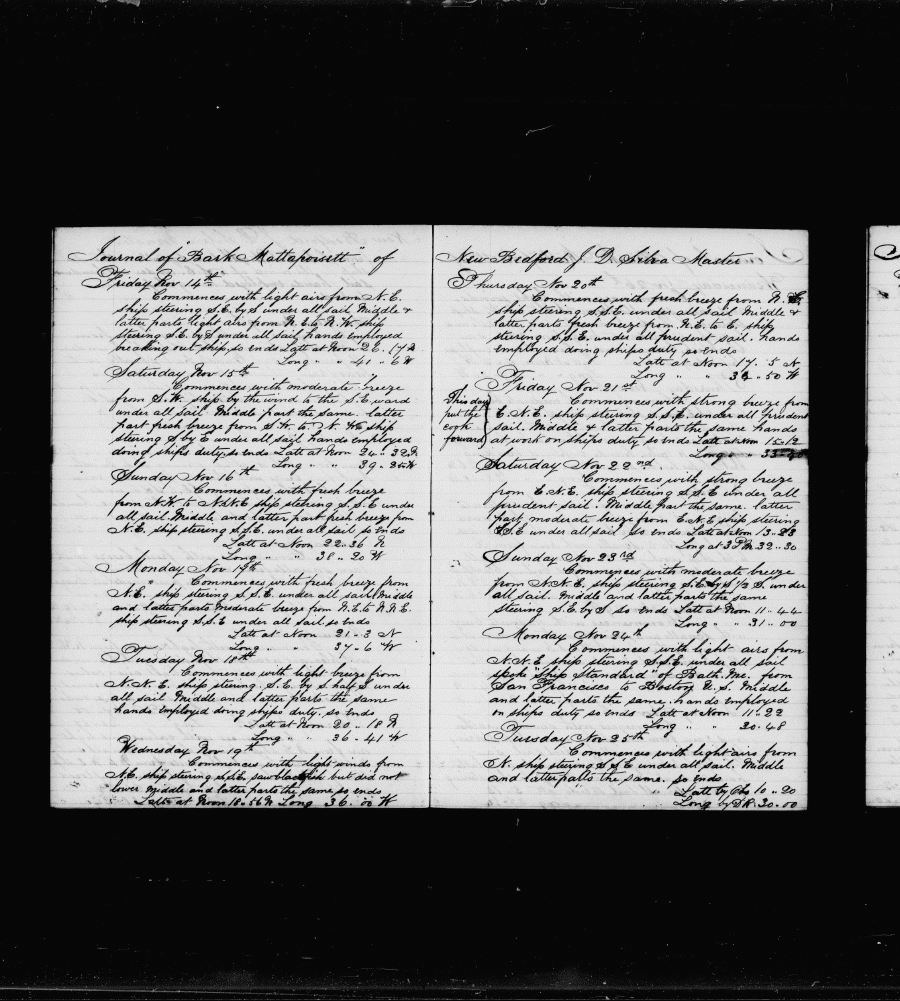 Journal of "Bark Mattapoisett" of
Friday Nov 14th
Commences with light airs from N.E.
ship steering S.E. by S under all sail Middle &
latter parts light airs from N.E. to N.W. ship
steering S.E. by S under all sail, hands employed
breaking out ship, so ends Latt at Noon 26..17 N
Long " " 41..6 W
Saturday Nov 15th
Commences with moderate breeze
from S.W. ship by the wind to the S.E. ward
under all sail. Middle part the same. latter
part fresh breeze from S.W. to N.W. ship
steering S by E under all sail hands employed
doing ships duty, so ends Latt at Noon 24..32 N
Long " " 39..25 W
Sunday Nov 16th
Commences with fresh breeze
from N.W. to N.N.E ship steering S.S.E under
all sail Middle and latter part fresh breeze from
N.E. ship steering S.S.E. under all sail so ends
Latt at Noon 22..36 N
Long " " 38..20 W
Monday Nov 17th
Commences with fresh breeze from
N.E. ship steering S.S.E. under all sail Middle
and latter parts moderate breeze from N.E to N.N.E.
ship steering S.S.E under all sail so ends
Latt at Noon 21-3 N
Long " " 37-6 W
Tuesday Nov 18th
Commences with light breeze from
N.N.E. ship steering S.E. by S half S under
all sail Middle and latter parts the same
hands employed doing ships duty. so ends
Latt at Noon 20-18 N
Long " " 36-41 W
Wednesday Nov 19th
Commences with light winds from
N.E. ship steering S.S.E. saw blackfish but did not
lower middle and latter parts the same, so ends
Latt at Noon 18-56 N Long 36.00 W
New Bedford J. D. Silva Master
Thursday Nov 20th
Commences with fresh breeze from N.E
ship steering S.S.E. under all sail Middle &
latter parts fresh breeze from N.E. to E. ship
steering S.S.E. under all prudent sail. hands
employed doing ships duty so ends
Latt at Noon 17.5 N
Long " " 34..50 W
Friday Nov 21st
Commences with strong breeze from
E.N.E. ship steering S.S.E. under all prudent
sail. Middle & latter parts the same hands
at work on ships duty so ends Latt at Noon 15-12
Long " " 33-
This day
put the
cook
forward
Saturday Nov 22nd
Commences with strong breeze
from E.N.E. ship steering S.S.E under all
prudent sail. Middle part the same. latter
part moderate breeze from E.N.E ship steering
S.S.E under all sail so ends Latt at Noon 13-23
Long at 3 PM 32..30
Sunday Nov 23rd
Commences with moderate breeze
from N.N.E. ship steering S.E by S 1/2 S. under
all sail. Middle and latter parts the same
steering S.E. by S so ends Latt at Noon 11-44
Long " " 31..00
Monday Nov 24th
Commences with light airs from
N.N.E ship steering S.S.E. under all sail
spoke "Ship Standard" of Bath. Me. from
San Francisco to Boston U.S. Middle
and latter parts the same. hands employed
on ships duty so ends Latt at Noon 11-22
Long " " 30.48
Tuesday Nov 25th
Commences with light airs from
N. ship steering S.S.E under all sail. Middle
and latter parts the same. so ends
Latt by Obs 10..20
Long by D.R. 30.00